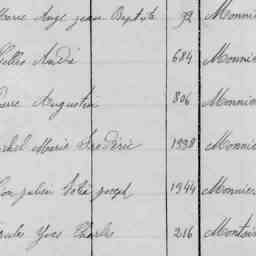 Marie Ange Jean Baptiste 92 Monnier
Gilles André 684 Monnier
Pierre Augustin 806 Monnier
Michel Marie Frédéric 1998 Monnier
Julien Victor Joseph 1944 Monnier
Jules Yves Charles 216